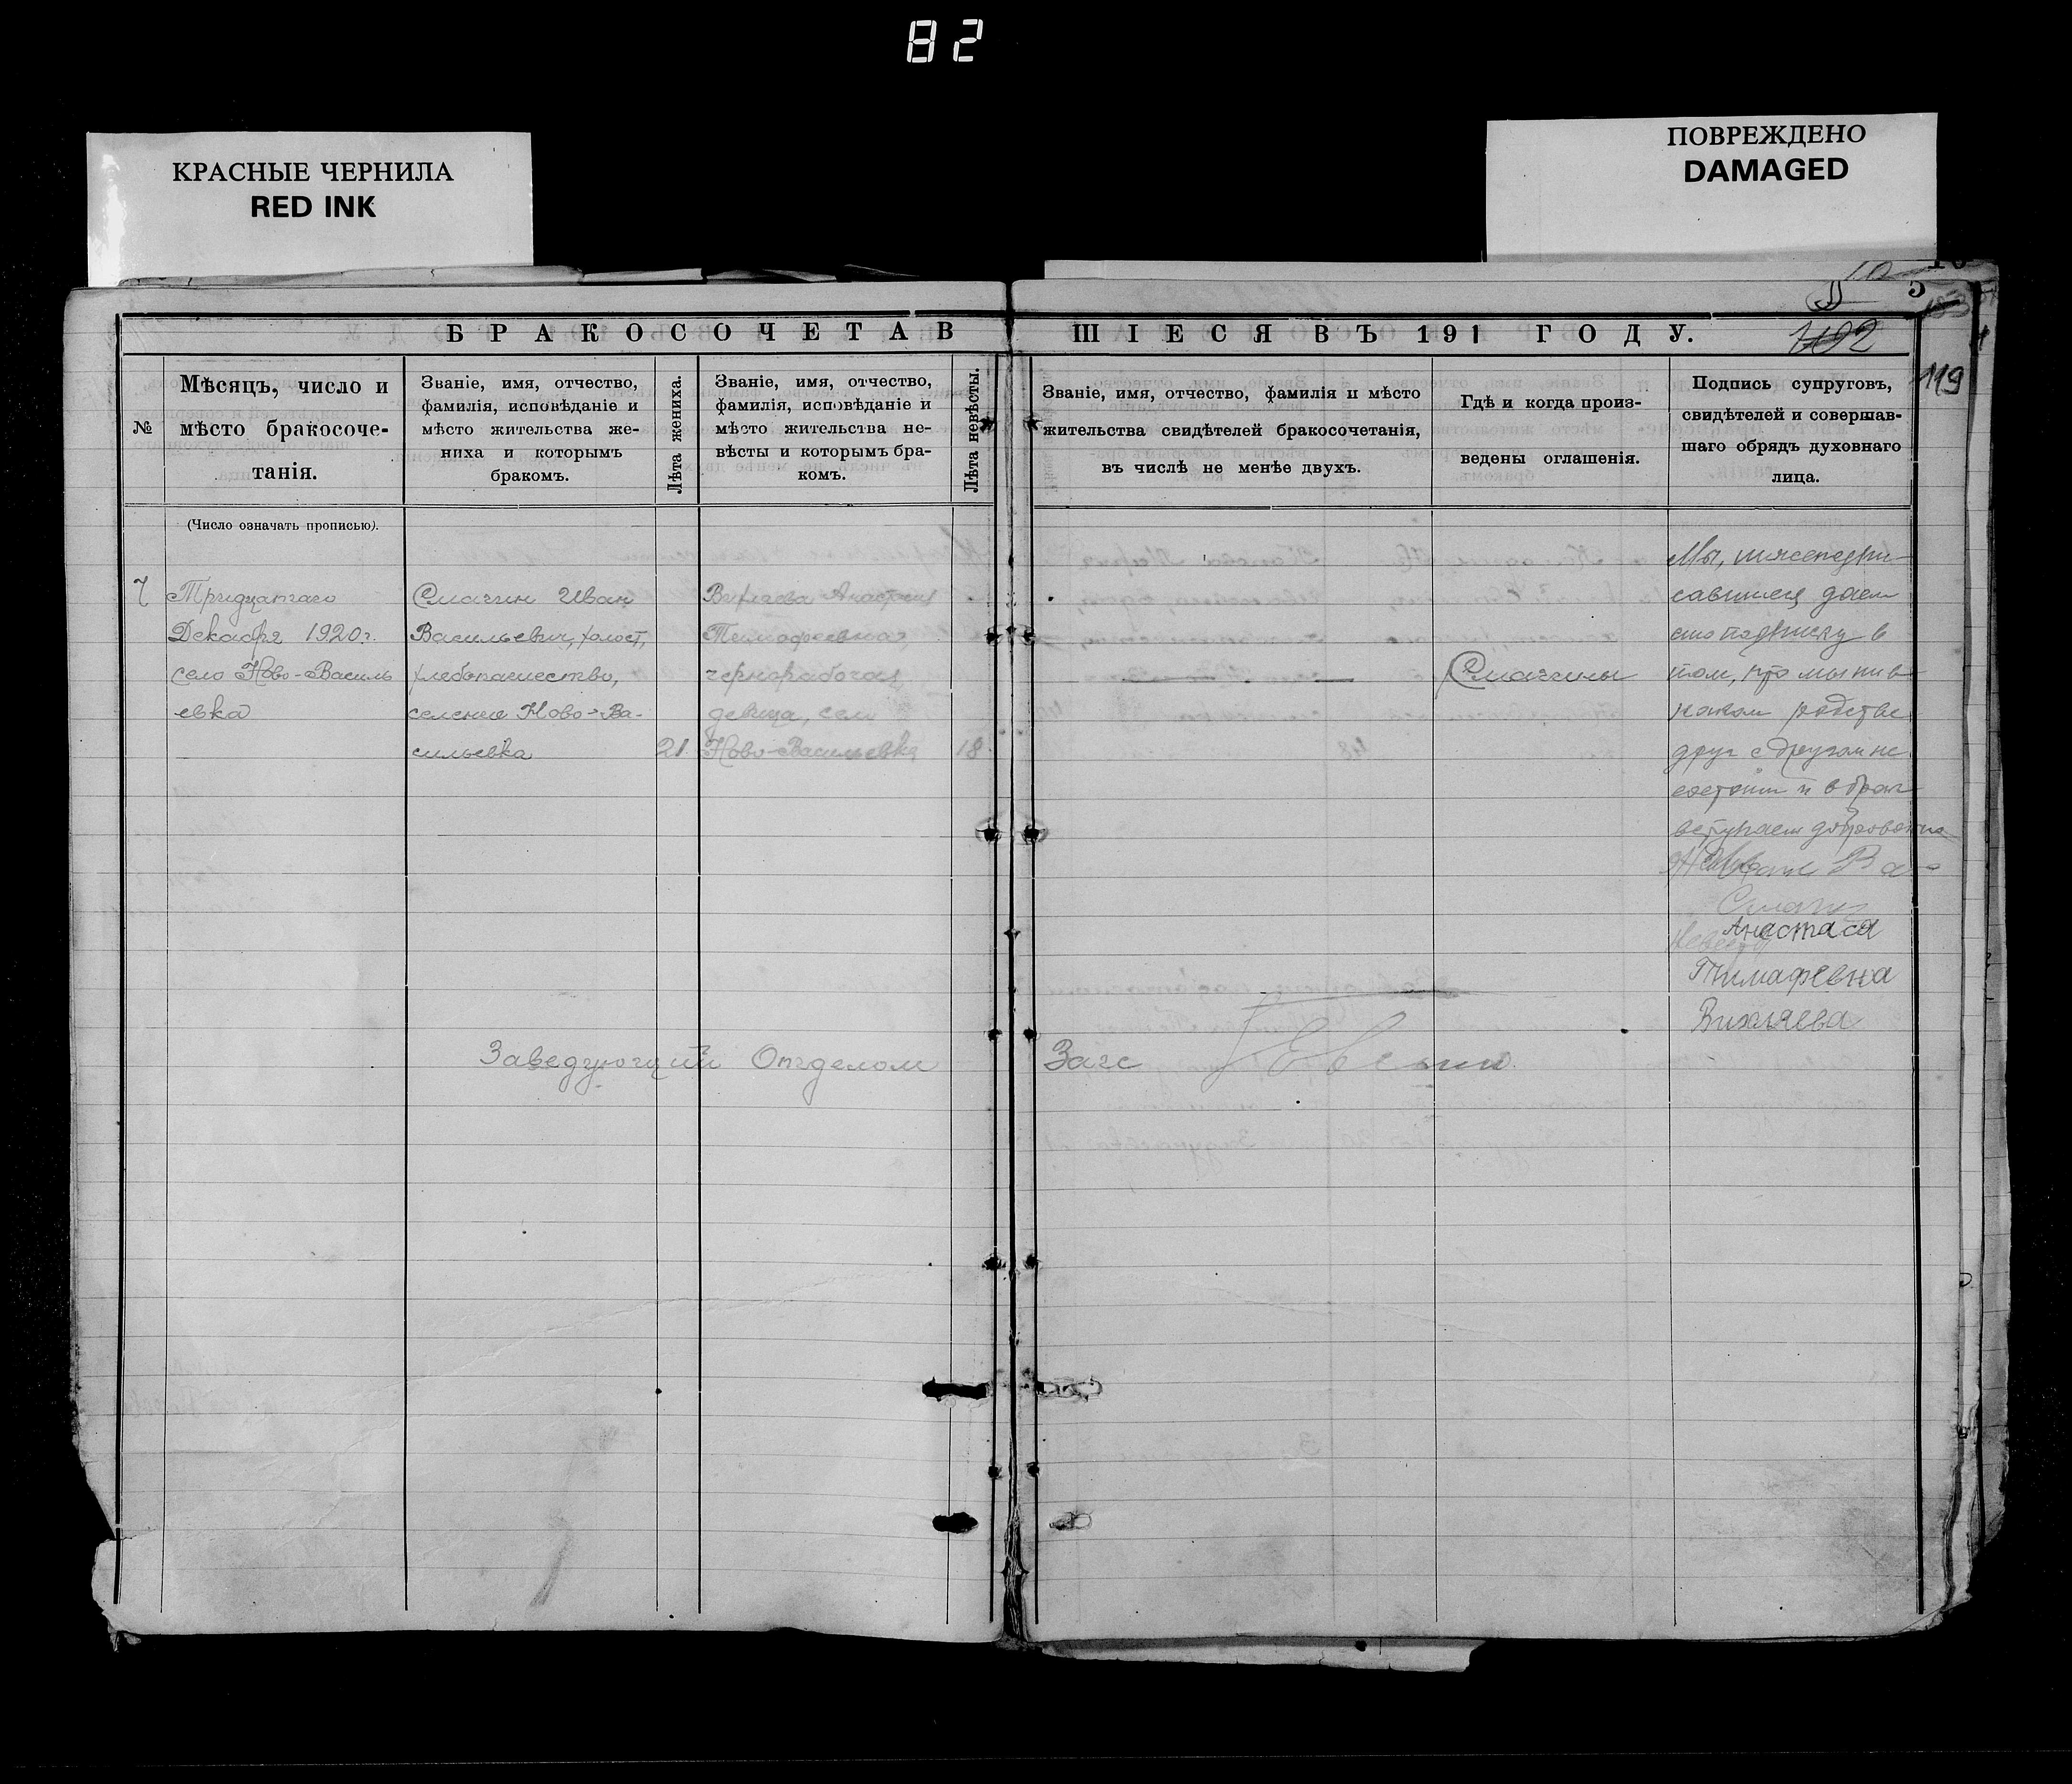 82
КРАСНЫЕ ЧЕРНИЛА
RED INK
ПОВРЕЖДЕНО
DAMAGED
5
102
119
БРАКОСОЧЕТАВ
ШІЕСЯ ВЪ 191 ГОДУ.
№
Мѣсяцъ, число и
мѣсто бракосоче-
танія.
Званіе, имя, отчество,
фамилія, исповѣданіе и
мѣсто жительства же-
ниха и которымъ
бракомъ.
Лѣта жениха.
Званіе, имя, отчество,
фамилія, исповѣданіе и
мѣсто жительства не-
вѣсты и которымъ бра-
комъ.
Лѣта невѣсты.
Званіе, имя, отчество, фамилія и мѣсто
жительства свидѣтелей бракосочетанія,
въ числѣ не менѣе двухъ.
Гдѣ и когда произ-
ведены оглашенія.
Подпись супруговъ,
свидѣтелей и совершав-
шаго обрядъ духовнаго
лица.
(Число означать прописью).
7
Тридцатаго
Декабря 1920 г.
село Ново-Василь
евка
Смагин Иван
Васильевич, холост,
хлебопашество,
селение Ново-Ва-
сильевка
21
Вихляева Анастасия
Тимофеевная,
чернорабочая
девица, село
Ново-Васильевка
18
Смагины
Мы, нижеподпи-
савшиеся даем
сию подписку в
том, что мы ни в
каком родстве
друг с другом не
состоим и в брак
вступаем добровольно
Иван Ва-
Смагин
Невеста Анастаса
Тимафевна
Вихляева
Заведующий Отделом
Загс